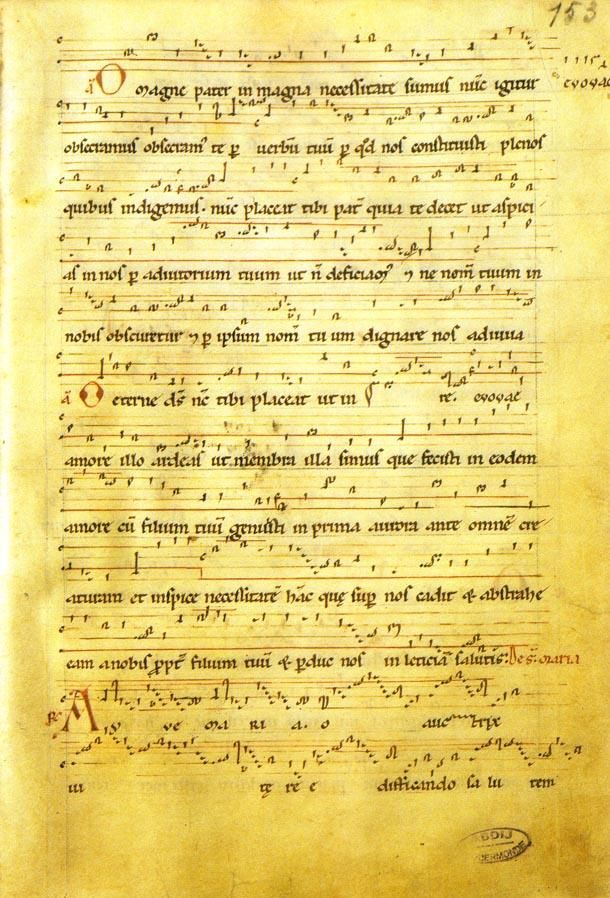 153
a O magne pater in magna necessitate sumus nūc igitur
evovae
obsecramus obsecram' te p verbū tuū p qd nos constituisti plenos
quibus indigemus. nūc placeat tibi pat quia te decet ut aspici
as in nos p adiutorium tuum ut n̄ deficiam' ⁊ ne nom̄ tuum in
nobis obscuretur ⁊ p ipsum nom̄ tu um dignare nos adiuua
a O eterne ds nc tibi placeat ut in re. evovae
amore illo ardeas ut membra illa simus que fecisti in eodem
amore cū filium tuū genuisti in prima aurora ante omnē cre
aturam et inspice necessitatē hāc quę sup nos cadit & abstrahe
eam a nobis ppt filium tuū & perduc nos in leticiā salutis. De s. maria
R A VE MARIA. O auctrix
ui tę re e dificando sa lu tem